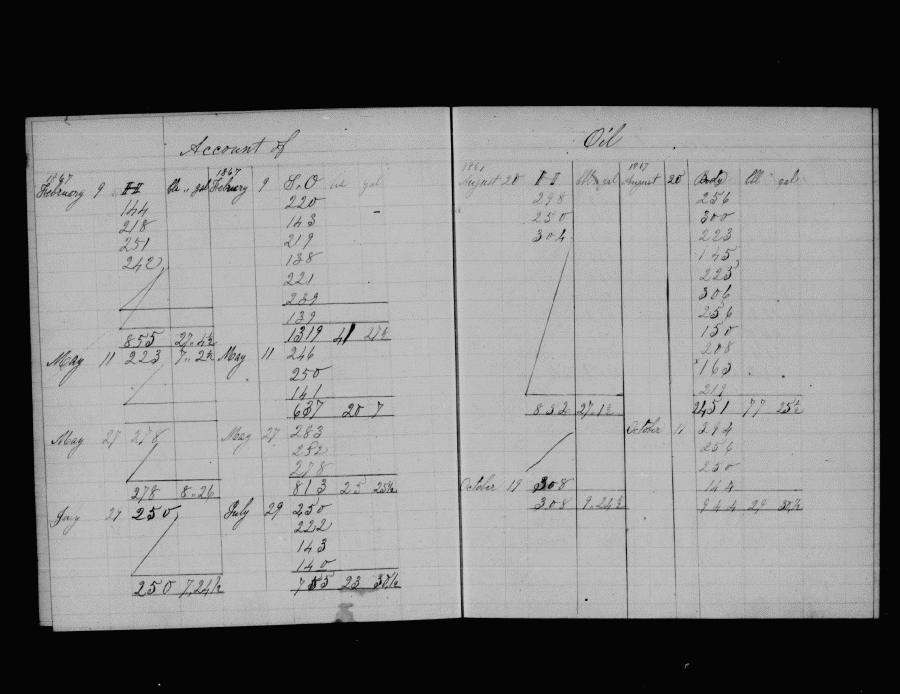 Account of Oil
1867 1867
February 9 H bls " gal February 9 S.O bls gal
144 220
218 143
251 219
242 138
221
239
139
855 27 " 4½ 1319 41 27½
May 11 223 7 " 2½ May 11 246
250
141
637 20 7
May 27 278 May 27 283
252
278
278 8 " 26 813 25 25½
July 29 250 July 29 250
222
143
140
250 7,24½ 755 23 30½
1867 1867
August 20 H bbl gal August 20 Body bbl gal
298 256
250 300
304 223
145
223
306
256
150
208
163
219
852 27 " 1½ 2451 77 25½
October 11 294
256
250
October 19 308 144
308 9 " 24½ 944 29 30½